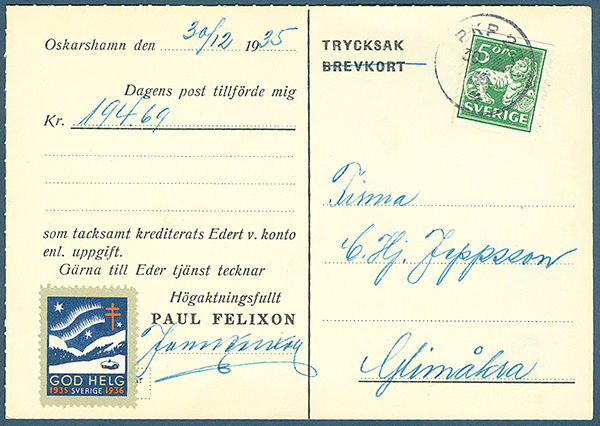 Oskarshamn den 30/12 1935
Dagens post tillförde mig
Kr. 194.69
som tacksamt krediterats Edert v. konto
enl. uppgift.
Gärna till Eder tjänst tecknar
Högaktningsfullt
PAUL FELIXON
GOD HELG
1935 SVERIGE 1936
TRYCKSAK
BREVKORT
PKP 2
5 ÖRE
SVERIGE
Firma
C. Hj. Jeppsson
Glimåkra